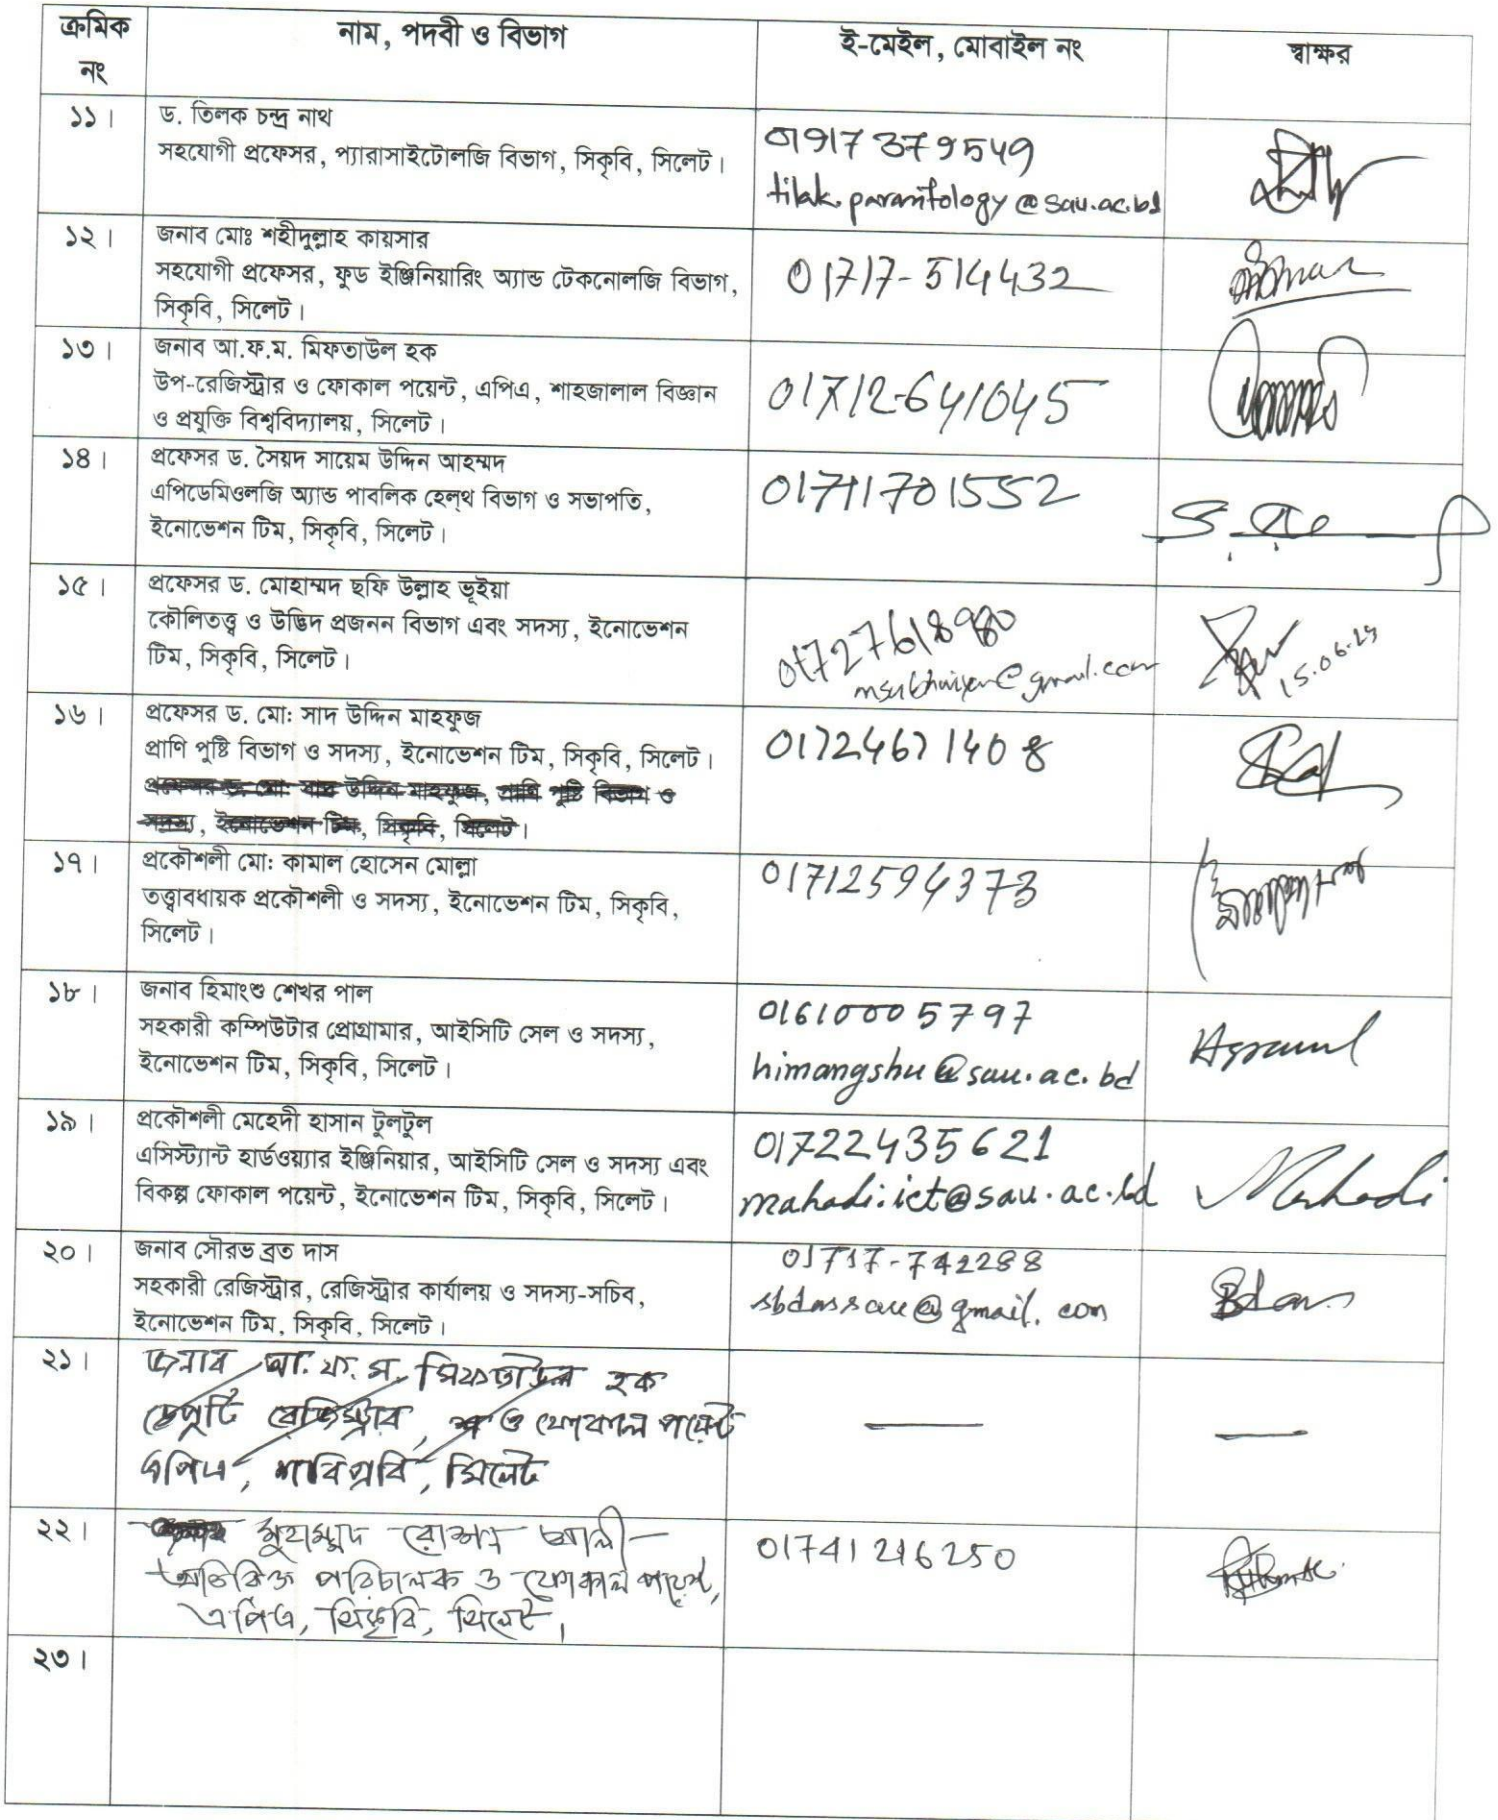 ক্রমিক নং
নাম, পদবী ও বিভাগ
ই-মেইল, মোবাইল নং
স্বাক্ষর
১১।
ড. তিলক চন্দ্র নাথ
সহযোগী প্রফেসর, প্যারাসাইটোলজি বিভাগ, সিকৃবি, সিলেট।
01917379549
tilak.parasitology@sau.ac.bd
১২।
জনাব মোঃ শহীদুল্লাহ কায়সার
সহযোগী প্রফেসর, ফুড ইঞ্জিনিয়ারিং অ্যান্ড টেকনোলজি বিভাগ,
সিকৃবি, সিলেট।
01717-514432
১৩।
জনাব আ.ফ.ম. মিফতাউল হক
উপ-রেজিস্ট্রার ও ফোকাল পয়েন্ট, এপিএ, শাহজালাল বিজ্ঞান
ও প্রযুক্তি বিশ্ববিদ্যালয়, সিলেট।
01712-641045
১৪।
প্রফেসর ড. সৈয়দ সায়েম উদ্দিন আহম্মদ
এপিডেমিওলজি অ্যান্ড পাবলিক হেল্‌থ বিভাগ ও সভাপতি,
ইনোভেশন টিম, সিকৃবি, সিলেট।
01711701552
১৫।
প্রফেসর ড. মোহাম্মদ ছফি উল্লাহ ভূইয়া
কৌলিতত্ত্ব ও উদ্ভিদ প্রজনন বিভাগ এবং সদস্য, ইনোভেশন
টিম, সিকৃবি, সিলেট।
msubhuiyan@gmail.com
১৬।
প্রফেসর ড. মো: সাদ উদ্দিন মাহফুজ
প্রাণি পুষ্টি বিভাগ ও সদস্য, ইনোভেশন টিম, সিকৃবি, সিলেট।
প্রফেসর ড. মো: সাদ উদ্দিন মাহফুজ, প্রাণি পুষ্টি বিভাগ ও
সদস্য, ইনোভেশন টিম, সিকৃবি, সিলেট।
01724671408
১৭।
প্রকৌশলী মো: কামাল হোসেন মোল্লা
তত্ত্বাবধায়ক প্রকৌশলী ও সদস্য, ইনোভেশন টিম, সিকৃবি,
সিলেট।
01712594373
১৮।
জনাব হিমাংশু শেখর পাল
সহকারী কম্পিউটার প্রোগ্রামার, আইসিটি সেল ও সদস্য,
ইনোভেশন টিম, সিকৃবি, সিলেট।
01610005797
himangshu@sau.ac.bd
১৯।
প্রকৌশলী মেহেদী হাসান টুলটুল
এসিস্ট্যান্ট হার্ডওয়্যার ইঞ্জিনিয়ার, আইসিটি সেল ও সদস্য এবং
বিকল্প ফোকাল পয়েন্ট, ইনোভেশন টিম, সিকৃবি, সিলেট।
01722435621
mahadi.ict@sau.ac.bd
Mahadi
২০।
জনাব সৌরভ ব্রত দাস
সহকারী রেজিস্ট্রার, রেজিস্ট্রার কার্যালয় ও সদস্য-সচিব,
ইনোভেশন টিম, সিকৃবি, সিলেট।
01717-742288
sbdassau@gmail.com
২১।
জনাব আ.ফ.ম. মিফতাউল হক
ডেপুটি রেজিস্ট্রার, ও ফোকাল পয়েন্ট
এপিএ, শাবিপ্রবি, সিলেট
২২।
মুহাম্মাদ রোশন আলী
অতিরিক্ত পরিচালক ও ফোকাল পয়েন্ট,
এপিএ, সিকৃবি, সিলেট।
01741216250
২৩।